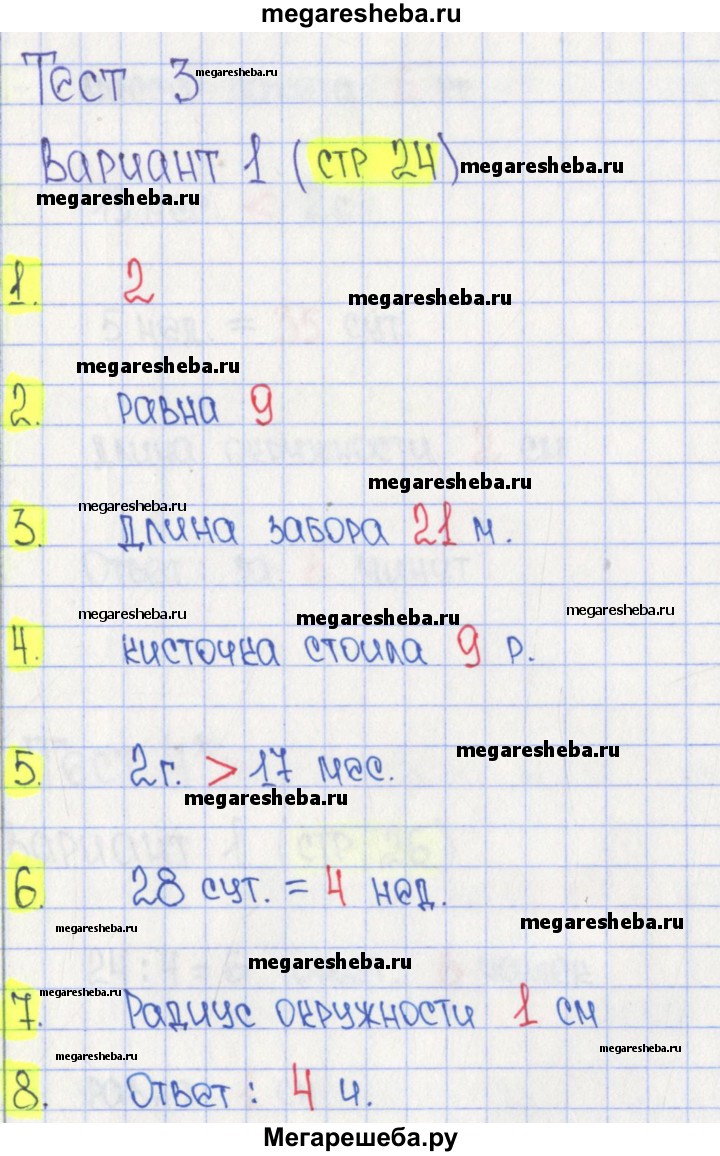 megaresheba.ru
Тест 3 megaresheba.ru
Вариант 1 (стр 24) megaresheba.ru
megaresheba.ru
1. 2
megaresheba.ru
megaresheba.ru
2. равна 9
megaresheba.ru
megaresheba.ru
3. Длина забора 21 м.
megaresheba.ru megaresheba.ru megaresheba.ru
4. кисточка стоила 9 р.
megaresheba.ru
5. 2г. > 17 мес.
megaresheba.ru
6. 28 сут. = 4 нед.
megaresheba.ru megaresheba.ru
megaresheba.ru
megaresheba.ru
7. Радиус окружности 1 см
megaresheba.ru megaresheba.ru
8. Ответ: 4 ч.
Мегарешеба.ру